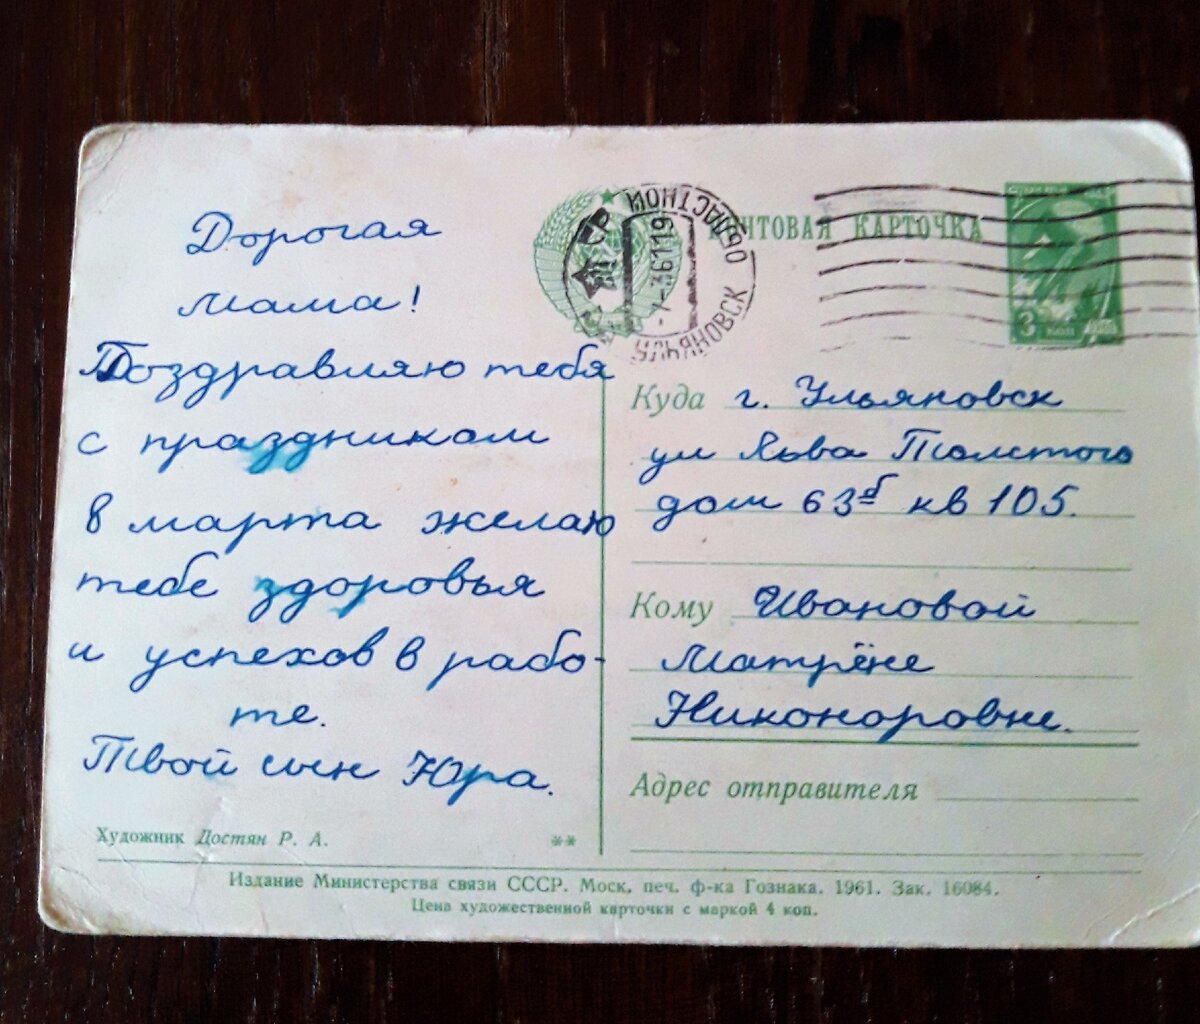 Дорогая
мама!
Поздравляю тебя
с праздником
8 марта желаю
тебе здоровья
и успехов в рабо-
те.
Твой сын Юра.
Художник Достян Р. А.
**
ПОЧТОВАЯ КАРТОЧКА
УЛЬЯНОВСК ОБЛАСТНОЙ
СССР
3 КОП
Куда г. Ульяновск
ул Льва Толстого
дом 63б кв 105.
Кому Ивановой
Матрёне
Никоноровне.
Адрес отправителя
Издание Министерства связи СССР. Моск. печ. ф-ка Гознака. 1961. Зак. 16084.
Цена художественной карточки с маркой 4 коп.